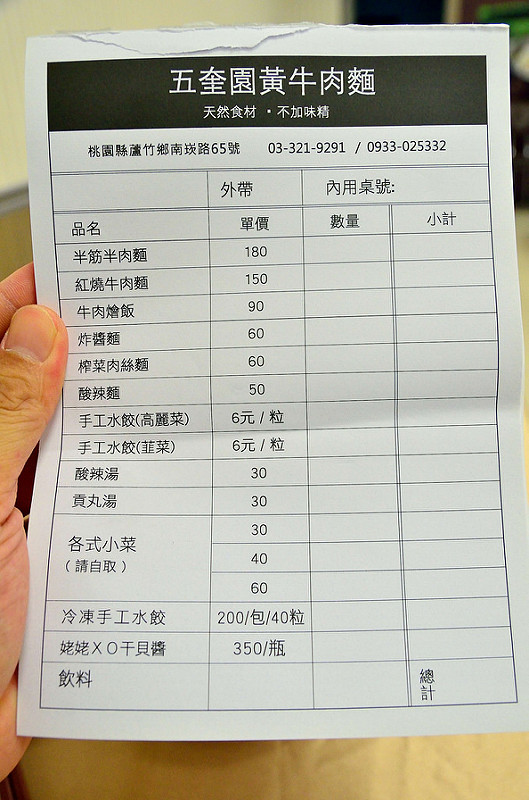 五奎園黃牛肉麵
天然食材 ▪ 不加味精
桃園縣蘆竹鄉南崁路65號 03-321-9291 / 0933-025332
外帶 內用桌號:
品名 單價 數量 小計
半筋半肉麵 180
紅燒牛肉麵 150
牛肉燴飯 90
炸醬麵 60
榨菜肉絲麵 60
酸辣麵 50
手工水餃(高麗菜) 6元 / 粒
手工水餃(韮菜) 6元 / 粒
酸辣湯 30
貢丸湯 30
各式小菜 30
(請自取) 40
60
冷凍手工水餃 200/包/40粒
姥姥XO干貝醬 350/瓶
飲料 總計